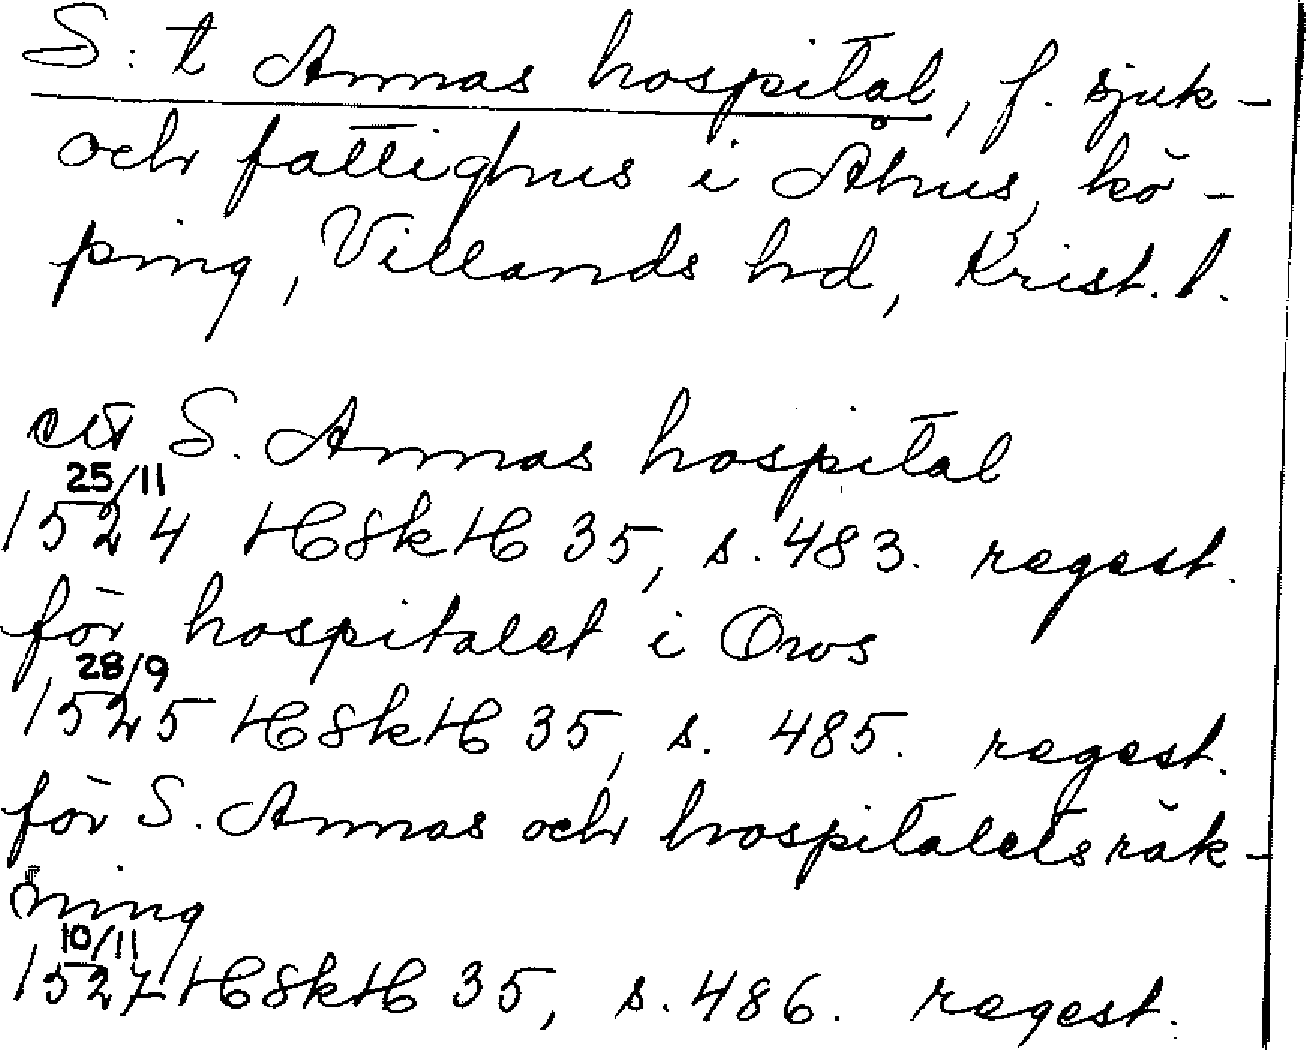 S:t Annas hospital, f. sjuk-
och fattighus i Åhus, kö-
ping, Villands hd, Krist. l.
att S. Annas hospital
25/11
1524 HSkH 35, s. 483. regest.
för hospitalet i Oos
28/9
1525 HSkH 35, s. 485. regest.
för S. Annas och hospitalets räk-
ning
10/11
1527 HSkH 35, s. 486. regest.